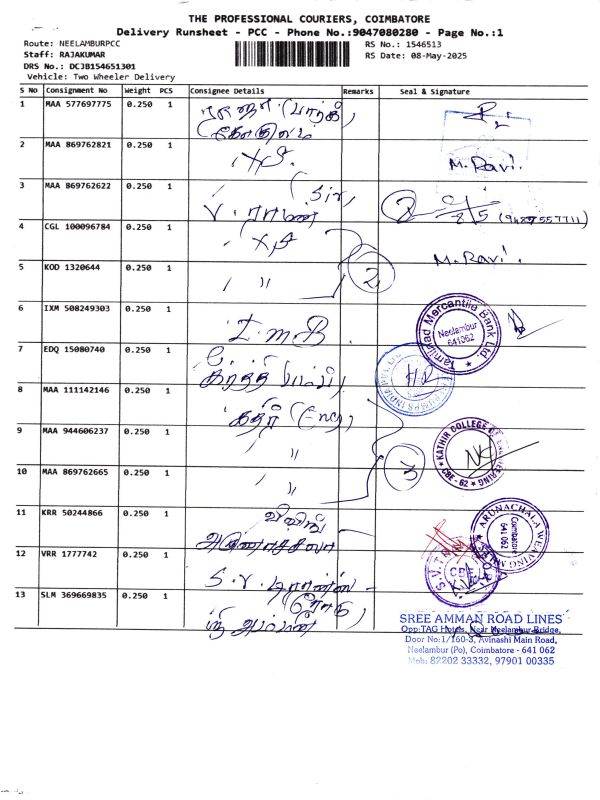 THE PROFESSIONAL COURIERS, COIMBATORE
Delivery Runsheet - PCC - Phone No.:9047080280 - Page No.:1
Route: NEELAMBURPCC
RS No.: 1546513
Staff: RAJAKUMAR
RS Date: 08-May-2025
DRS No.: DCJB154651301
Vehicle: Two Wheeler Delivery
S No Consignment No Weight PCS Consignee Details Remarks Seal & Signature
1 MAA 577697775 0.250 1
2 MAA 869762821 0.250 1 M. Ravi.
3 MAA 869762622 0.250 1 (Sir) 2 8/5 (9487557711)
4 CGL 100096784 0.250 1 M. Ravi.
5 KOD 1320644 0.250 1 " 2
6 IXM 508249303 0.250 1 T.M.B
Tamilnad Mercantile Bank Ltd
Neelambur
641062
7 EDQ 15080740 0.250 1
8 MAA 111142146 0.250 1
9 MAA 944606237 0.250 1 "
KATHIR COLLEGE OF ENGINEERING
CBE - 62
10 MAA 869762665 0.250 1 " 3
11 KRR 50244866 0.250 1
அருணாச்சலா
ARUNACHALA WEAVING
Coimbatore
641 062
12 VRR 1777742 0.250 1
S.V.
13 SLM 369669835 0.250 1
ஸ்ரீ அம்மன்
SREE AMMAN ROAD LINES
Opp:TAG Hotels, Near Neelambur Bridge,
Door No:1/160-3, Avinashi Main Road,
Neelambur (Po), Coimbatore - 641 062
Mob: 82202 33332, 97901 00335